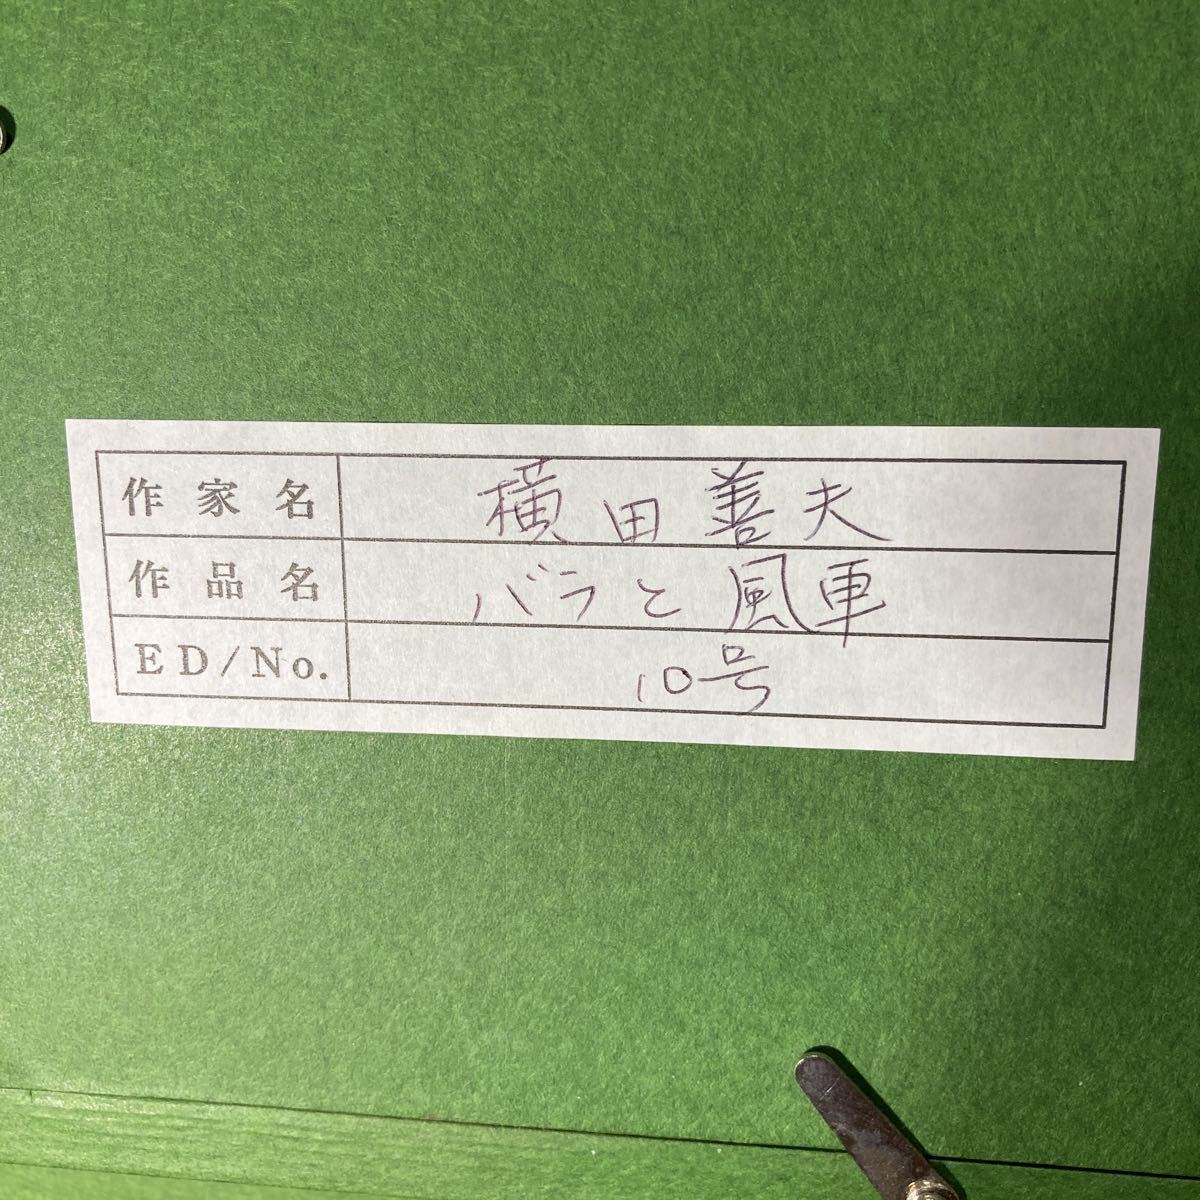 作家名 横田善夫
作品名 バラと風車
ED/No. 10号